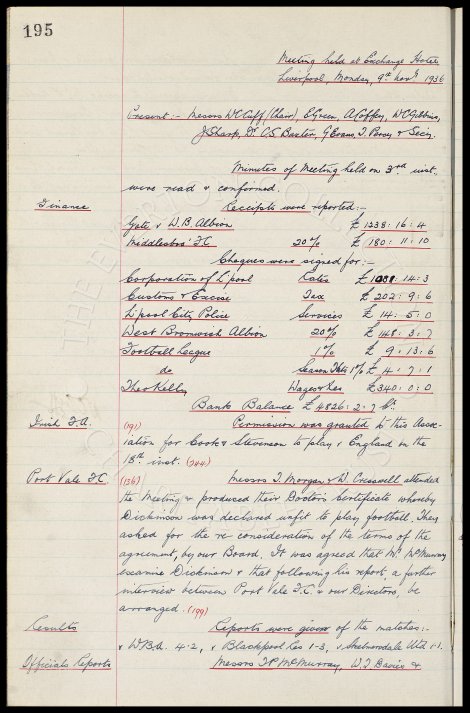 195
Meeting held at Exchange Hotel
Liverpool, Monday, 9th Novr 1936
Present:- Messrs W.C. Cuff (Chair), E. Green, A. Coffey, W.C. Gibbins,
J. Sharp, Dr C.S. Baxter, G. Evans, T. Percy & Secy.
Minutes of Meeting held on 3rd inst.
were read & confirmed.
Finance Receipts were reported:-
Gate v W.B. Albion £ 1238:16:4
Middlesbro' F.C. 20% £ 180:11:10
Cheques were signed for:-
Corporation of L'pool Rates £ :14:3
Customs & Excise Tax £ 202:9:6
L'pool City Police Services £ 14:5:0
West Bromwich Albion 20% £ 148:3:7
Football League 1% £ 9:13:6
do Season Tkts 1% £ 14:7:1
Theo Kelly Wages &es £340:0:0
Bank Balance £ 4826:2:7
Irish F.A. (191) Permission was granted to this Asso-
ciation for Cook & Stevenson to play v England on the
18th inst. (244)
Port Vale F.C. (136) Messrs T. Morgan & W. Cresswell attended
the Meeting & produced their Doctors Certificate whereby
Dickinson was declared unfit to play football. They
asked for the re-consideration of the terms of the
agreement, by our Board. It was agreed that Mr McMurray
examine Dickinson & that following his report, a further
interview between Port Vale F.C. & our Directors, be
arranged. (199)
Results Reports were given of the matches:-
v W.B.A. 4-2, v Blackpool Res 1-3, v Skelmersdale Utd 1-1.
Officials Reports Messrs McMurray, W.J. Davies &